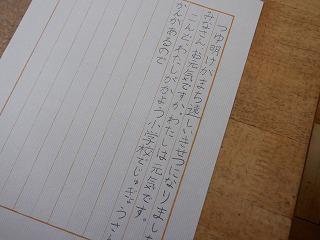 つゆ明けがまち遠しいきせつになりました
みなさんお元気ですか。わたしは元気です。
こんど、わたしがかよう小学校でじゅぎょうさ
かんがあるので